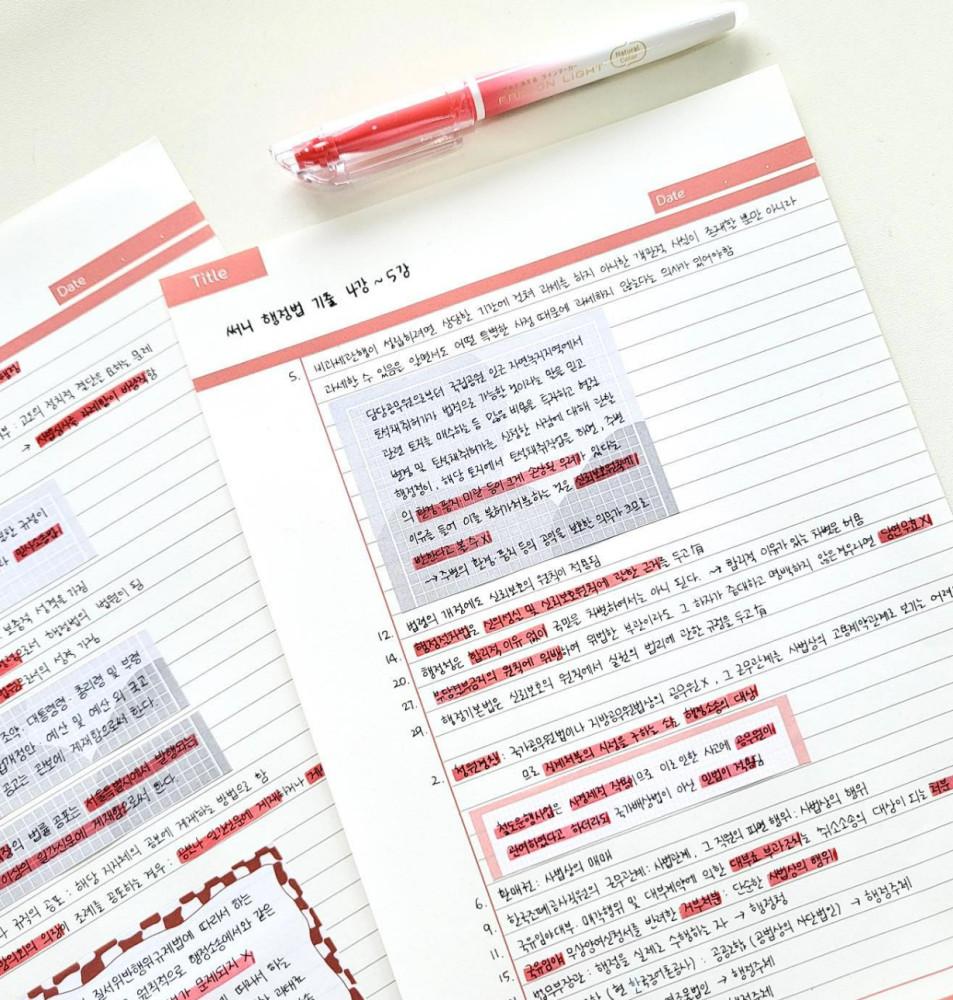 Natural Color
FRIXION LIGHT
Date
Title
써니 행정법 기출 4강 ~ 5강
5. 비과세관행이 성립하려면 상당한 기간에 걸쳐 과세를 하지 아니한 객관적 사실이 존재할 뿐만 아니라
과세할 수 있음을 알면서도 어떤 특별한 사정 때문에 과세하지 않는다는 의사가 있어야 함
담당공무원으로부터 국립공원 인근 자연녹지지역에서
토석채취허가가 법적으로 가능할 것이라는 말을 믿고
관련 토지를 매수하는 등 많은 비용을 투자하고 형질
변경 및 토석채취허가를 신청한 사람에 대해 관할
행정청이, 해당 토지에서 토석채취작업을 하면, 주변
의 환경·풍치·미관 등이 크게 손상될 우려가 있다는
이유를 들어 이를 불허가처분하는 것은 신뢰보호원칙에
반한다고 볼 수 X
→ 주변의 환경·풍치 등의 공익을 보호할 의무가 크므로
12. 법령의 개정에도 신뢰보호의 원칙이 적용됨
14. 행정절차법은 신의성실 및 신뢰보호원칙에 관한 규정을 두고 有
20. 행정청은 합리적 이유 없이 국민을 차별하여서는 아니 된다. → 합리적 이유가 있는 차별은 허용
27. 부당결부금지의 원칙에 위반하여 위법한 부관이라도 그 하자가 중대하고 명백하지 않은 경우라면 당연무효 X
29. 행정기본법은 신뢰보호의 원칙에서 실권의 법리에 관한 규정을 두고 有
2. 청원경찰: 국가공무원법이나 지방공무원법상의 공무원 X, 그 근무관계를 사법상의 고용계약관계로 보기는 어려
므로 징계처분의 시정을 구하는 소는 행정소송의 대상
철도운행사업은 사경제적 작용이므로 이로 인한 사고에 공무원이
관여하였다고 하더라도 국가배상법이 아닌 민법이 적용됨
6. 환매권: 사법상의 매매
9. 한국조폐공사직원의 근무관계: 사법관계, 그 직원의 파면 행위: 사법상의 행위
11. 국유임야대부·매각행위 및 대부계약에 의한 대부료 부과조치는 취소소송의 대상이 되는 처분
15. 국유임야 무상양여신청서를 반려한 거부처분: 단순한 사법상의 행위
법무부장관: 행정을 실제로 수행하는 자 → 행정청
(현 한국교통공사): 공공조합 (공법상의 사단법인) → 행정주체
→ 행정주체
Date
→ 사법심사를 자제함이 바람직함
조약, 대통령령, 총리령 및 부령
예산 및 예산 외 국고
공고는 관보에 게재함으로써 한다.
법률 공포는 서울특별시에서 발행되는
이상의 일간신문에 게재함으로써 한다.
규칙의 공포: 해당 지자체의 공보에 게재하는 방법으로 함
조례를 공포하는 경우: 공보나 일간신문에 게재하거나
질서위반행위규제법에 따라서 하는
원칙적으로 행정소송에서와 같은
문제되지 X
따라서 하는